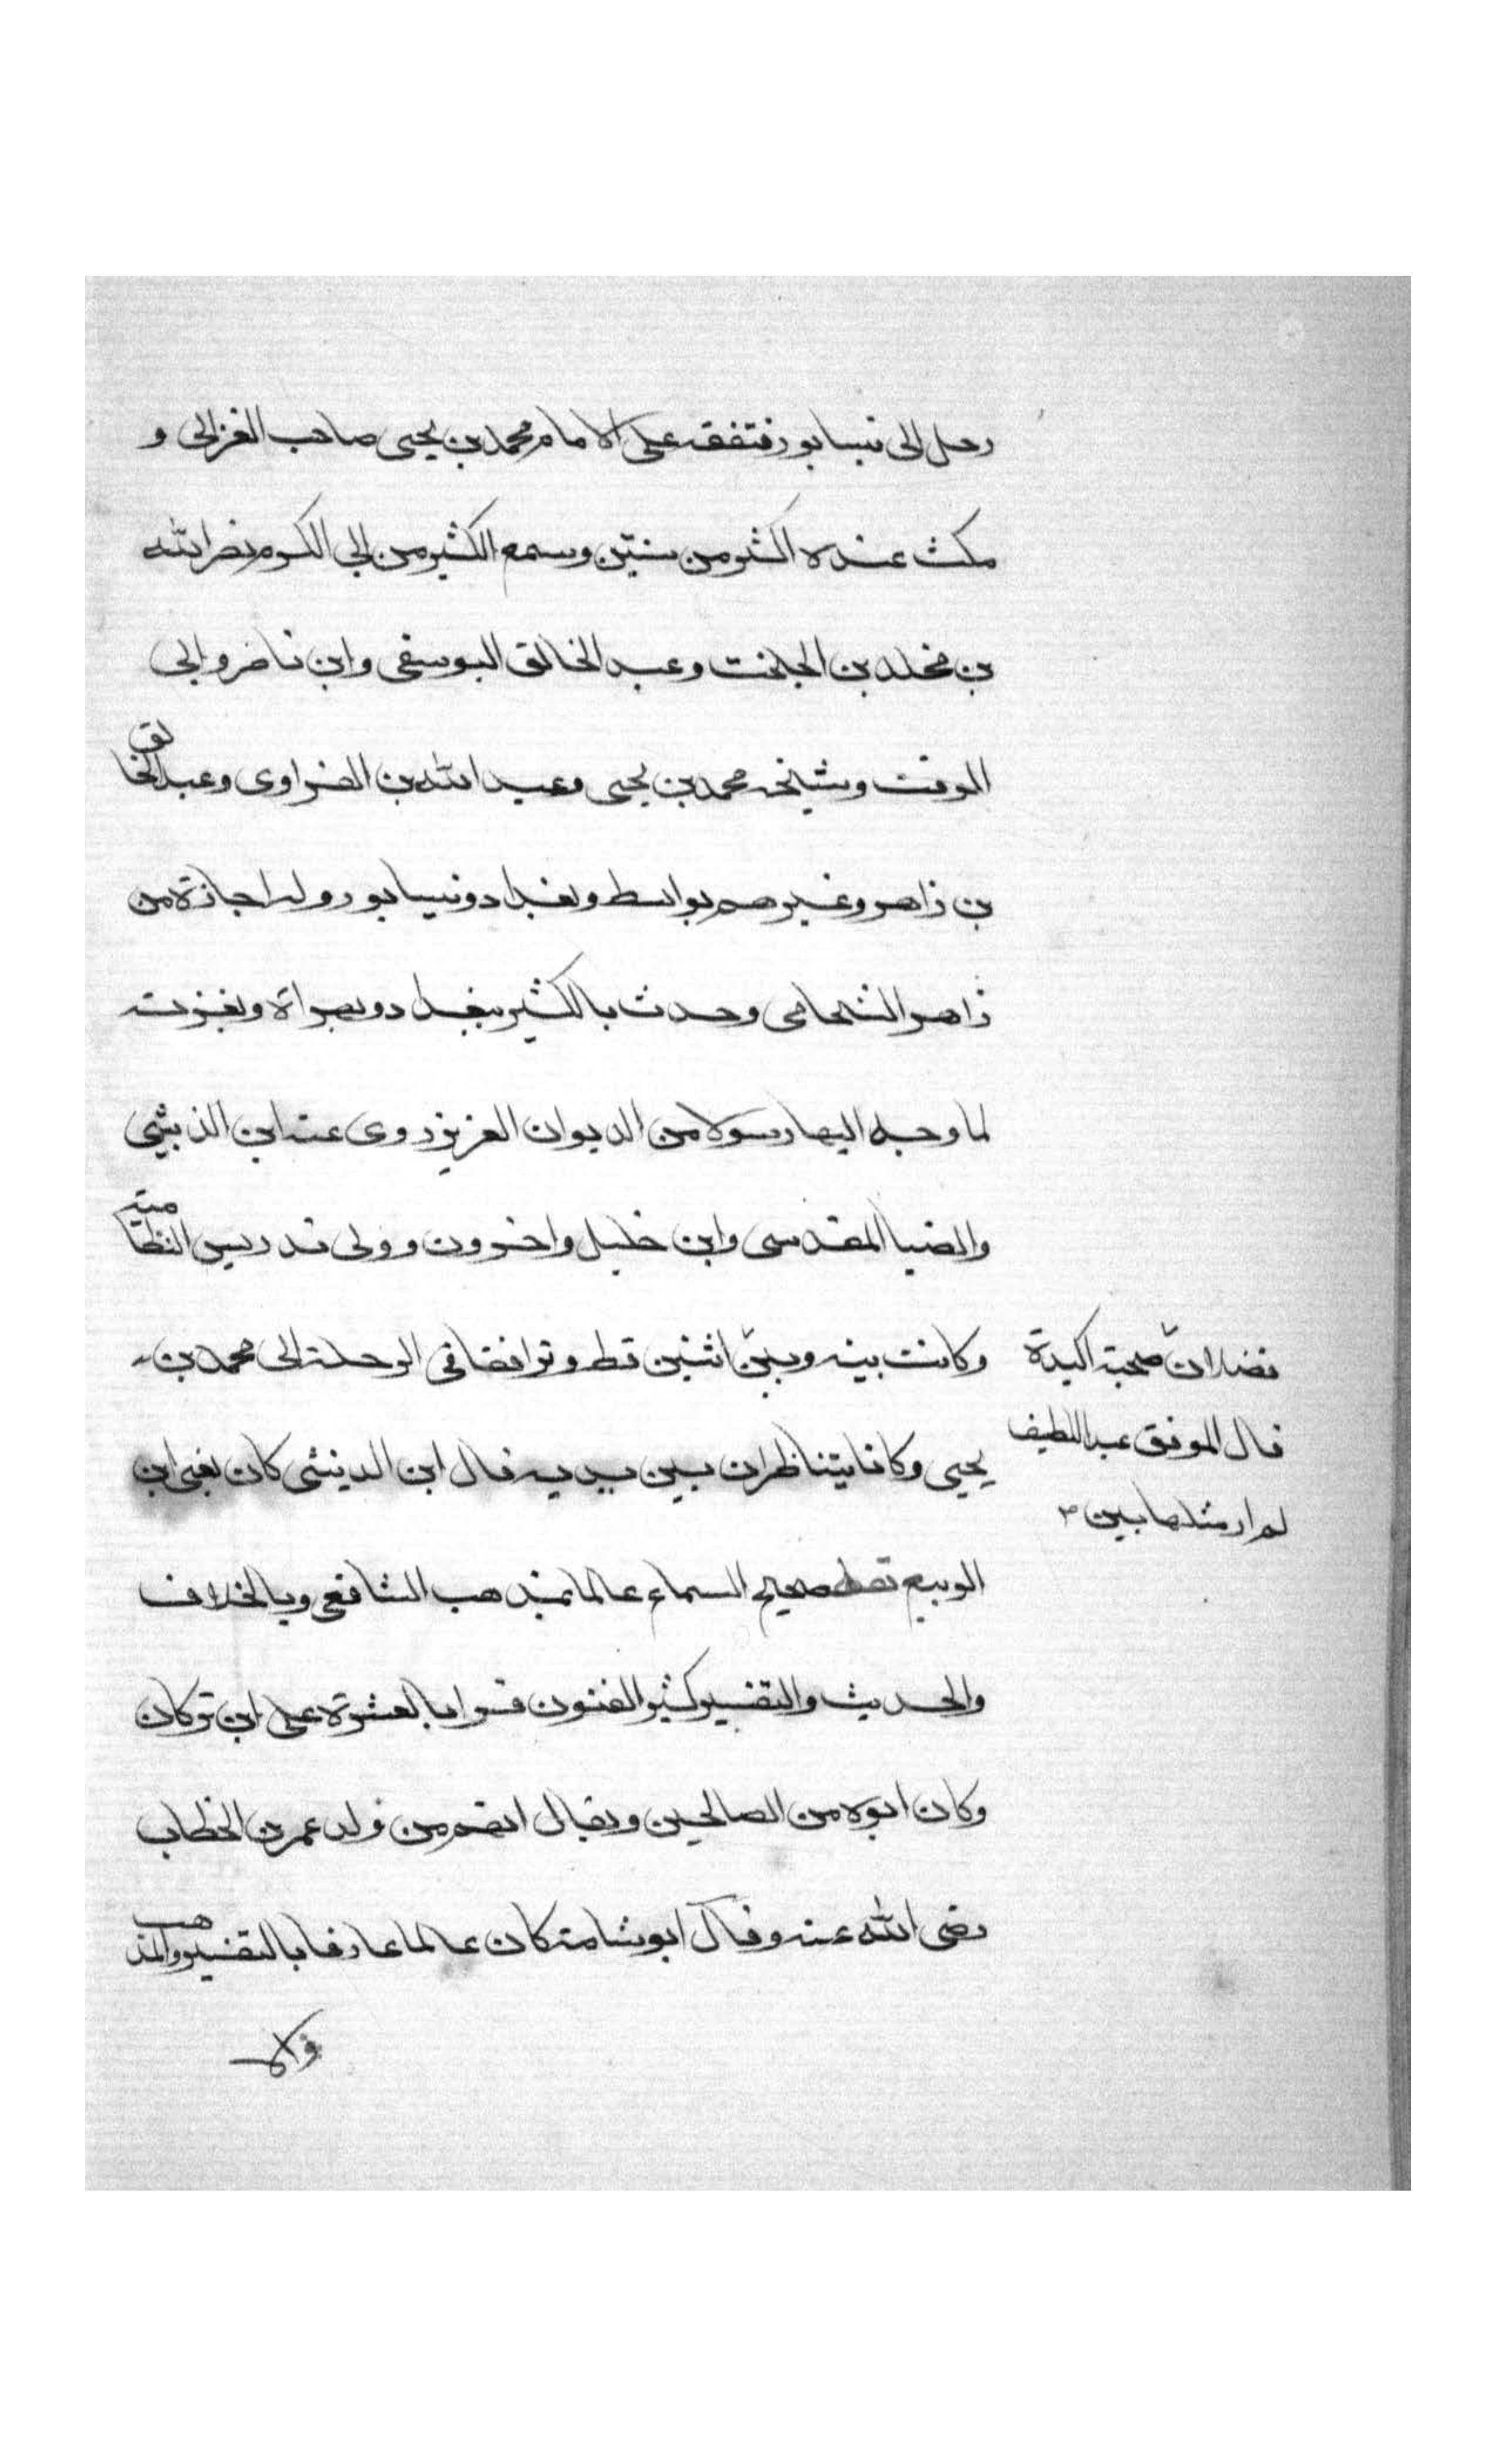 رحل الى نيسابور فتفقه على الامام محمد بن يحيى صاحب الغزالى و
مكث عنده اكثر من سنتين وسمع الكثير من ابى الكرم نصر الله
بن مخلد بن الجلخت وعبد الخالق اليوسفى وابن ناصر وابى
الوقت وشيخه محمد بن يحيى وعبد الله بن الفراوى وعبد الخالق
بن زاهر وغيرهم بواسط وبغداد ونيسابور وله اجازة من
زاهر الشحامى وحدث بالكثير ببغداد وبهراة وبغزنة
لما وجه اليها رسولا من الديوان العزيز روى عنه ابن الدبيثى
والضيا المقدسى وابن خليل واخرون وولى تدريس النظامية
وكانت بينه وبين اثنين قط وترافقا فى الرحلة الى محمد بن
فضلان صحبة اكيدة
قال الموفق عبد اللطيف
لم ار مثلها بين
يحيى وكانا يتناظران بين يديه قال ابن الدبيثى كان يعنى ابن
الربيع ثقة صحيح السماع عالما بمذهب الشافعى وبالخلاف
والحديث والتفسير كثير الفنون قرا بالعشرة على ابن تركان
وكان ابوه من الصالحين ويقال انهم من ولد عمر بن الخطاب
رضى الله عنه وقال ابو شامة كان عالما عارفا بالتفسير والمذهب
والا